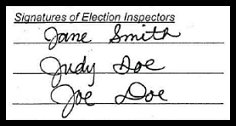 Signatures of Election Inspectors
Jane Smith
Judy Doe
Joe Doe